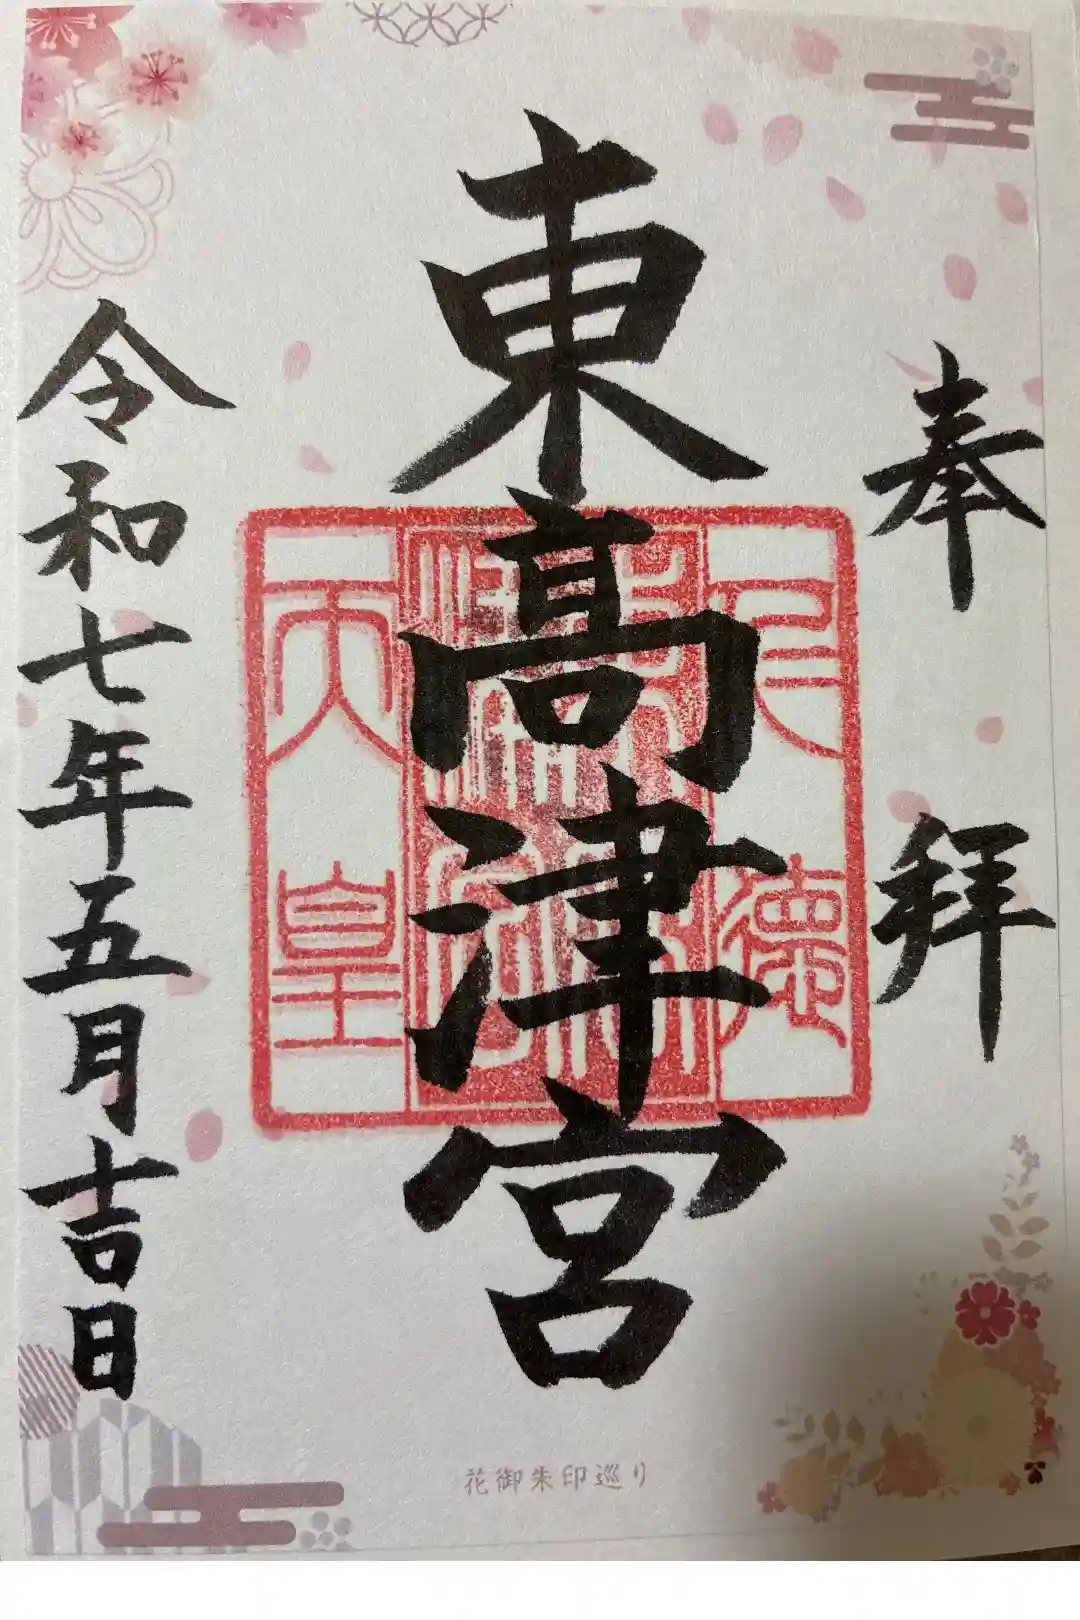 奉拝
東高津宮
仁徳
天皇
令和七年五月吉日
花御朱印巡り